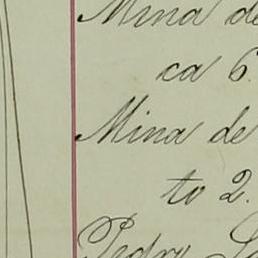 Mina de
ca 6.
Mina de
to 2.
Pedro